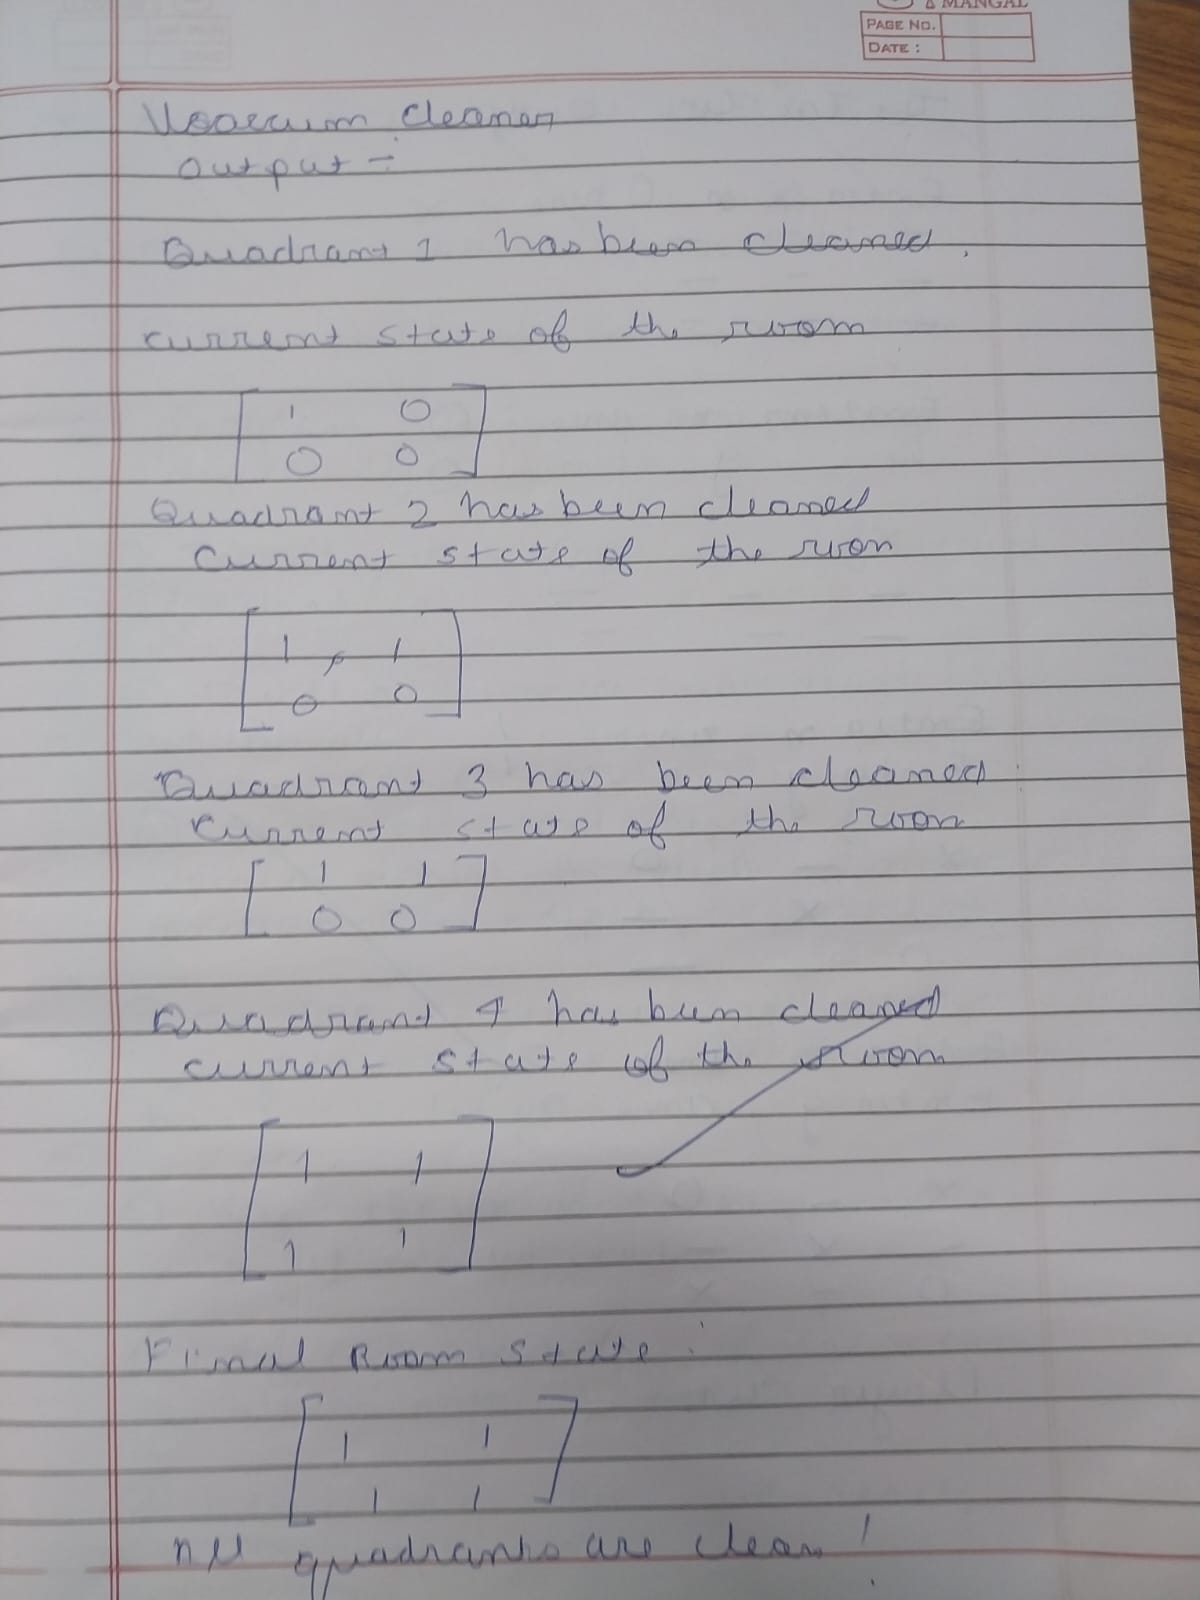 & MANGAL
PAGE NO.
DATE :
Vacuum cleaner
Output -
Quadrant 1 has been cleaned.
current state of the room
1 0
0 0
Quadrant 2 has been cleaned
Current state of the room
1 , 1
0 0
Quadrant 3 has been cleaned
Current state of the room
1 1
0 0
Quadrant 4 has been cleaned
current state of the room
1 1
1 1
Final Room state :
1 1
1 1
All quadrants are clean !